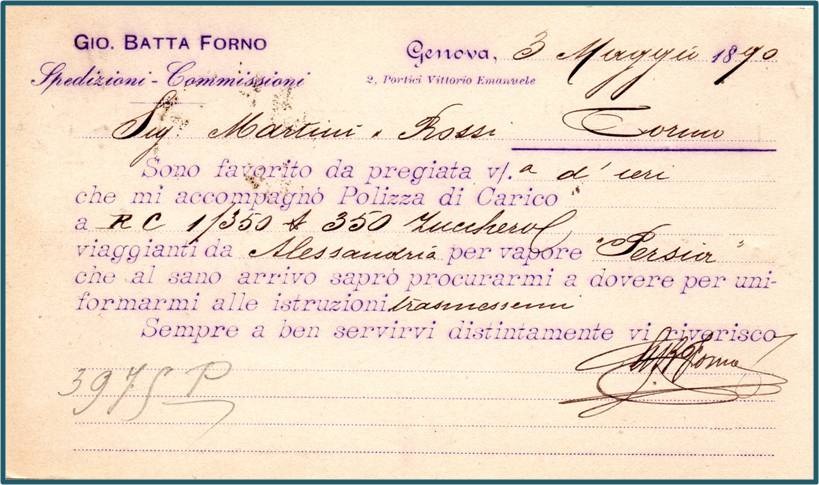 GIO. BATTA FORNO
Spedizioni - Commissioni
Genova, 3 Maggio 1890
2, Portici Vittorio Emanuele
Sig. Martini e Rossi Torino
Sono favorito da pregiata v/.a d'ieri
che mi accompagnò Polizza di Carico
a RC 1/350 350 Zucchero
viaggianti da Alessandria per vapore "Persia"
che al sano arrivo saprò procurarmi a dovere per uni-
formarmi alle istruzioni trasmessemi
Sempre a ben servirvi distintamente vi riverisco
Forno
397 P